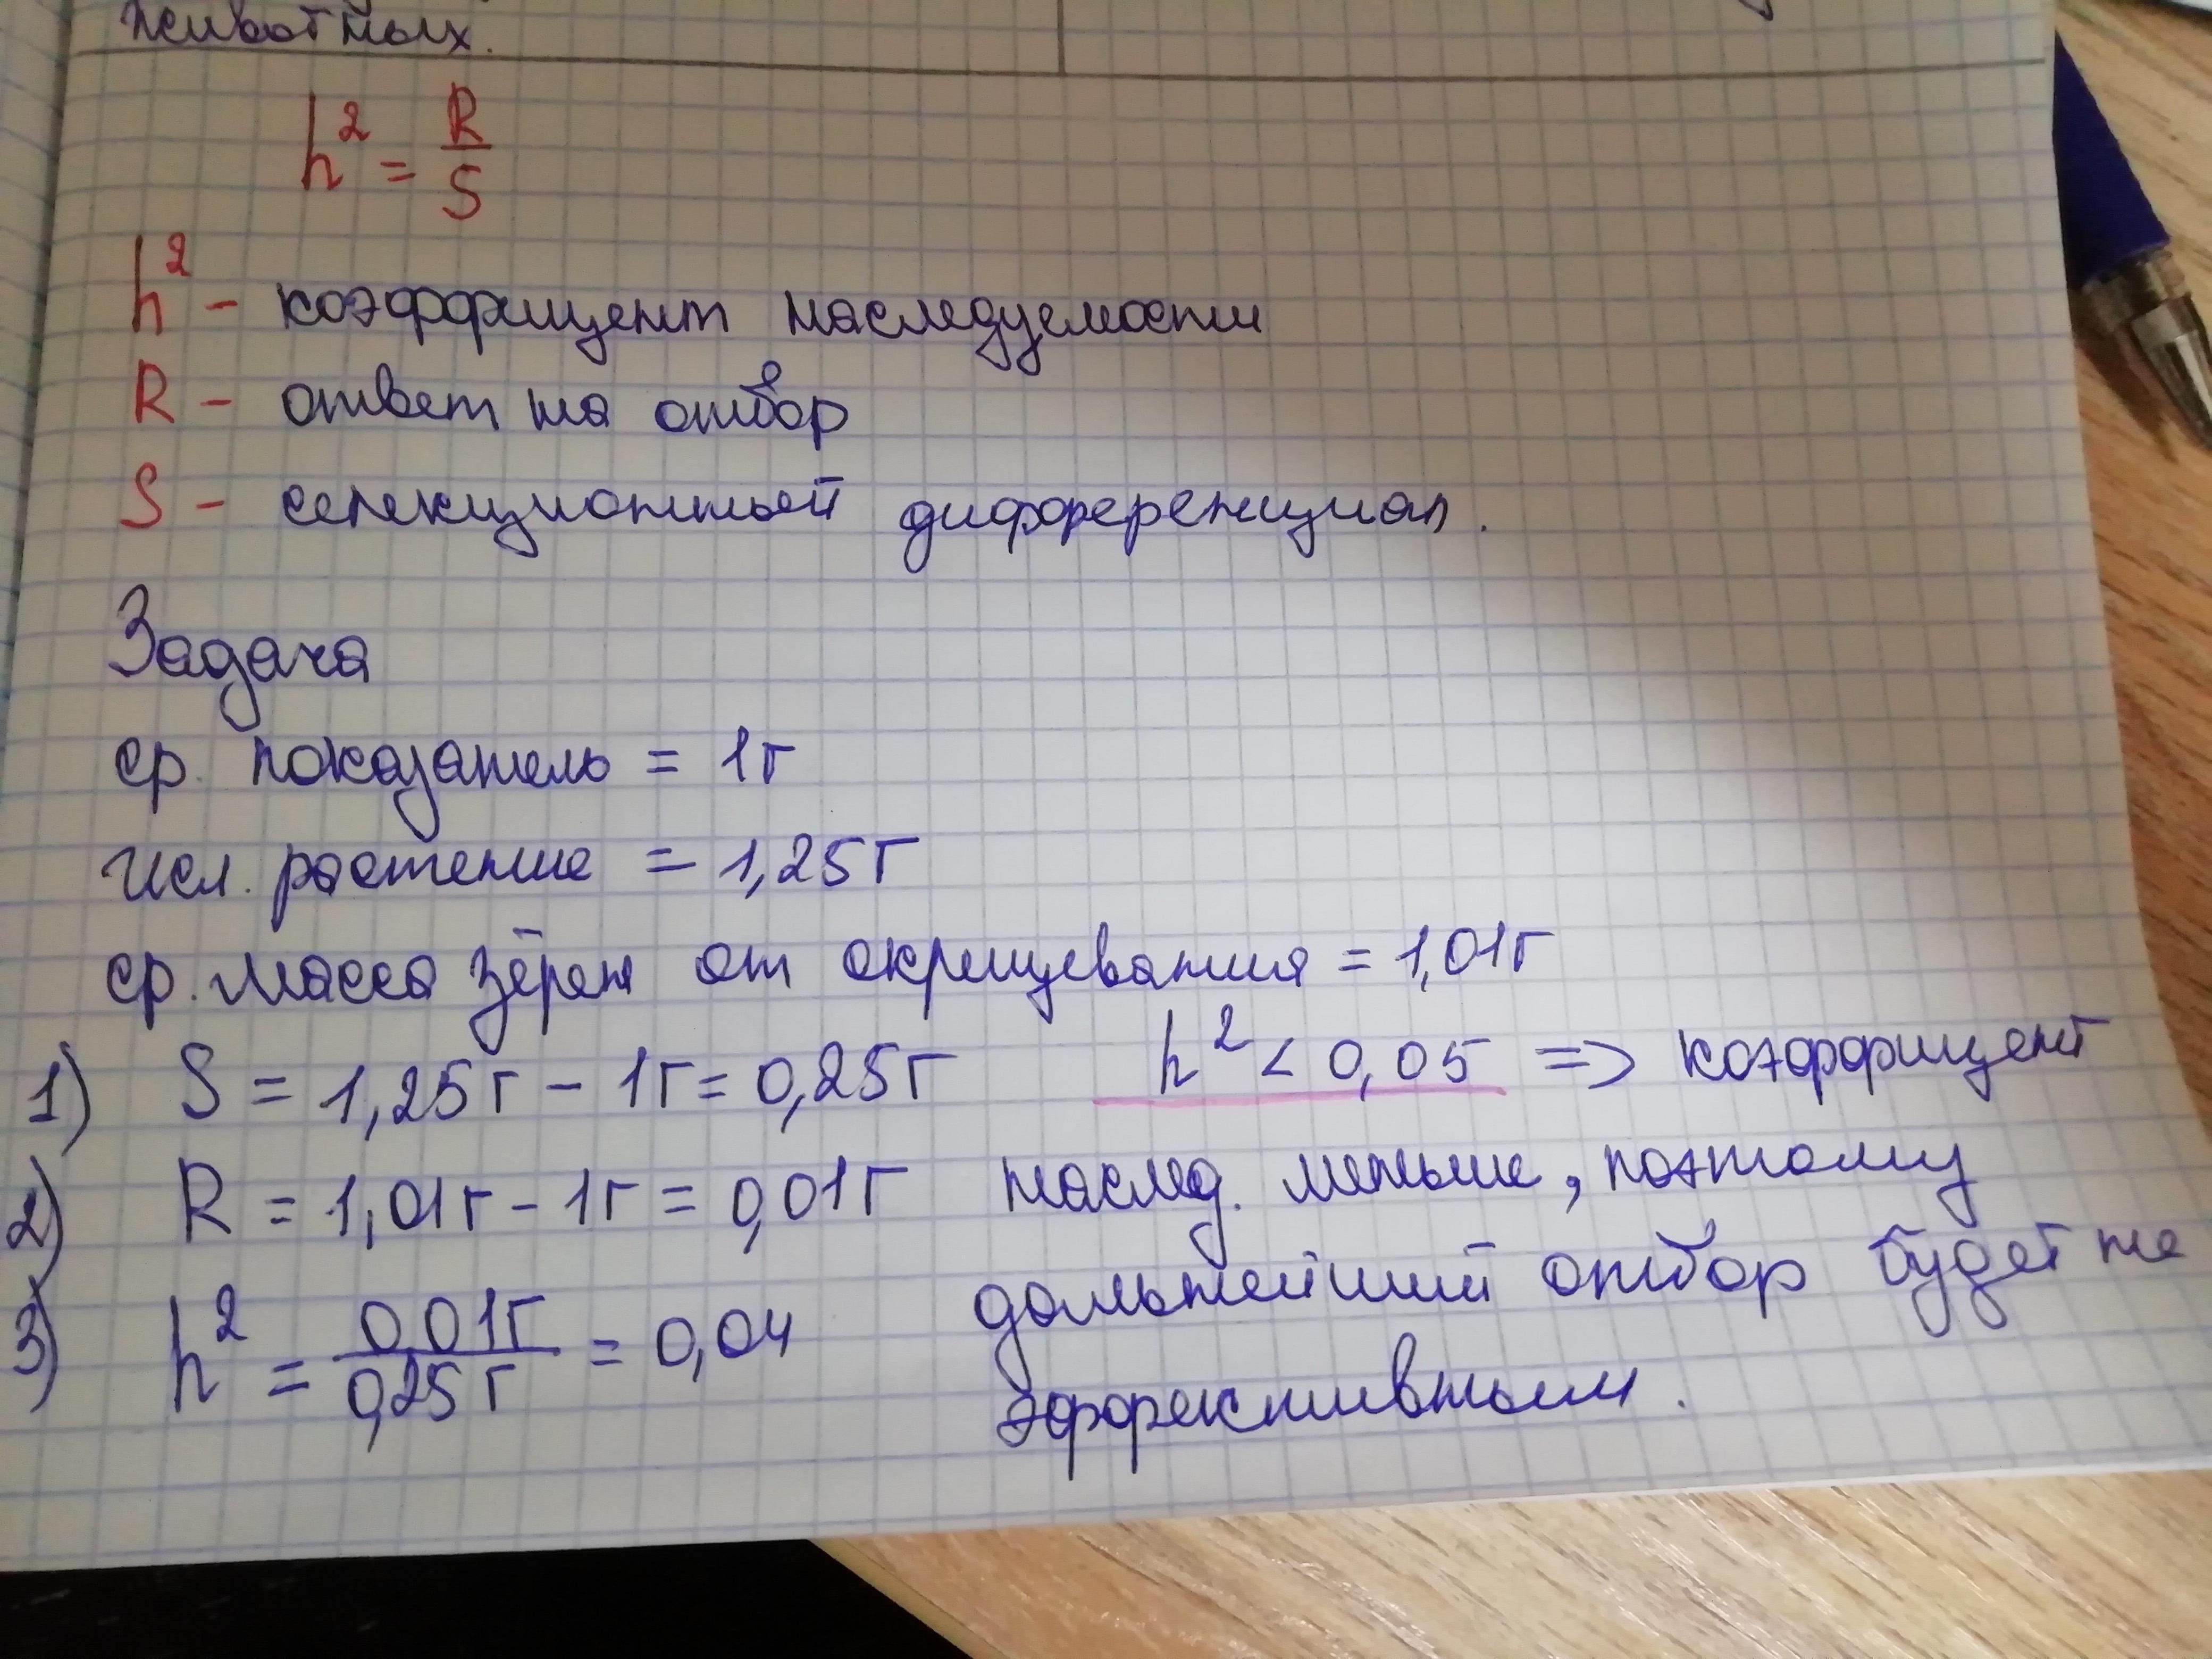 животных.
h² = R/S
h² - коэффициент наследуемости
R - ответ на отбор
S - селекционный дифференциал.
Задача
ср. показатель = 1г
исл. растение = 1,25г
ср. масса зёрен от скрещивания = 1,01г
1) S = 1,25г - 1г = 0,25г
2) R = 1,01г - 1г = 0,01г
3) h² = 0,01г/0,25г = 0,04
h² < 0,05 => коэффициент
наслед. меньше, поэтому
дальнейший отбор будет не
эффективным.